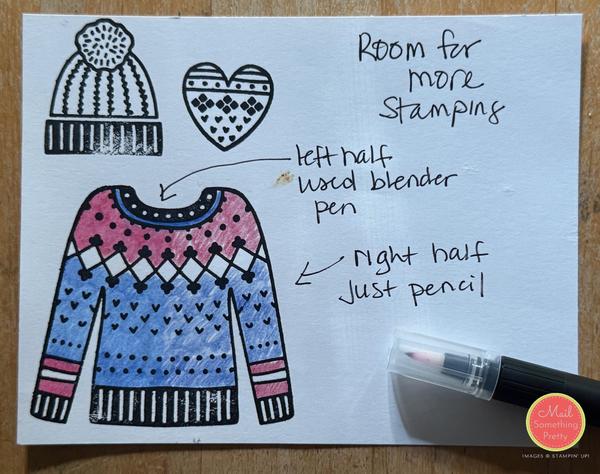 Room for
more
Stamping
left half
used blender
pen
right half
just pencil
Mail
Something
Pretty
IMAGES © STAMPIN' UP!